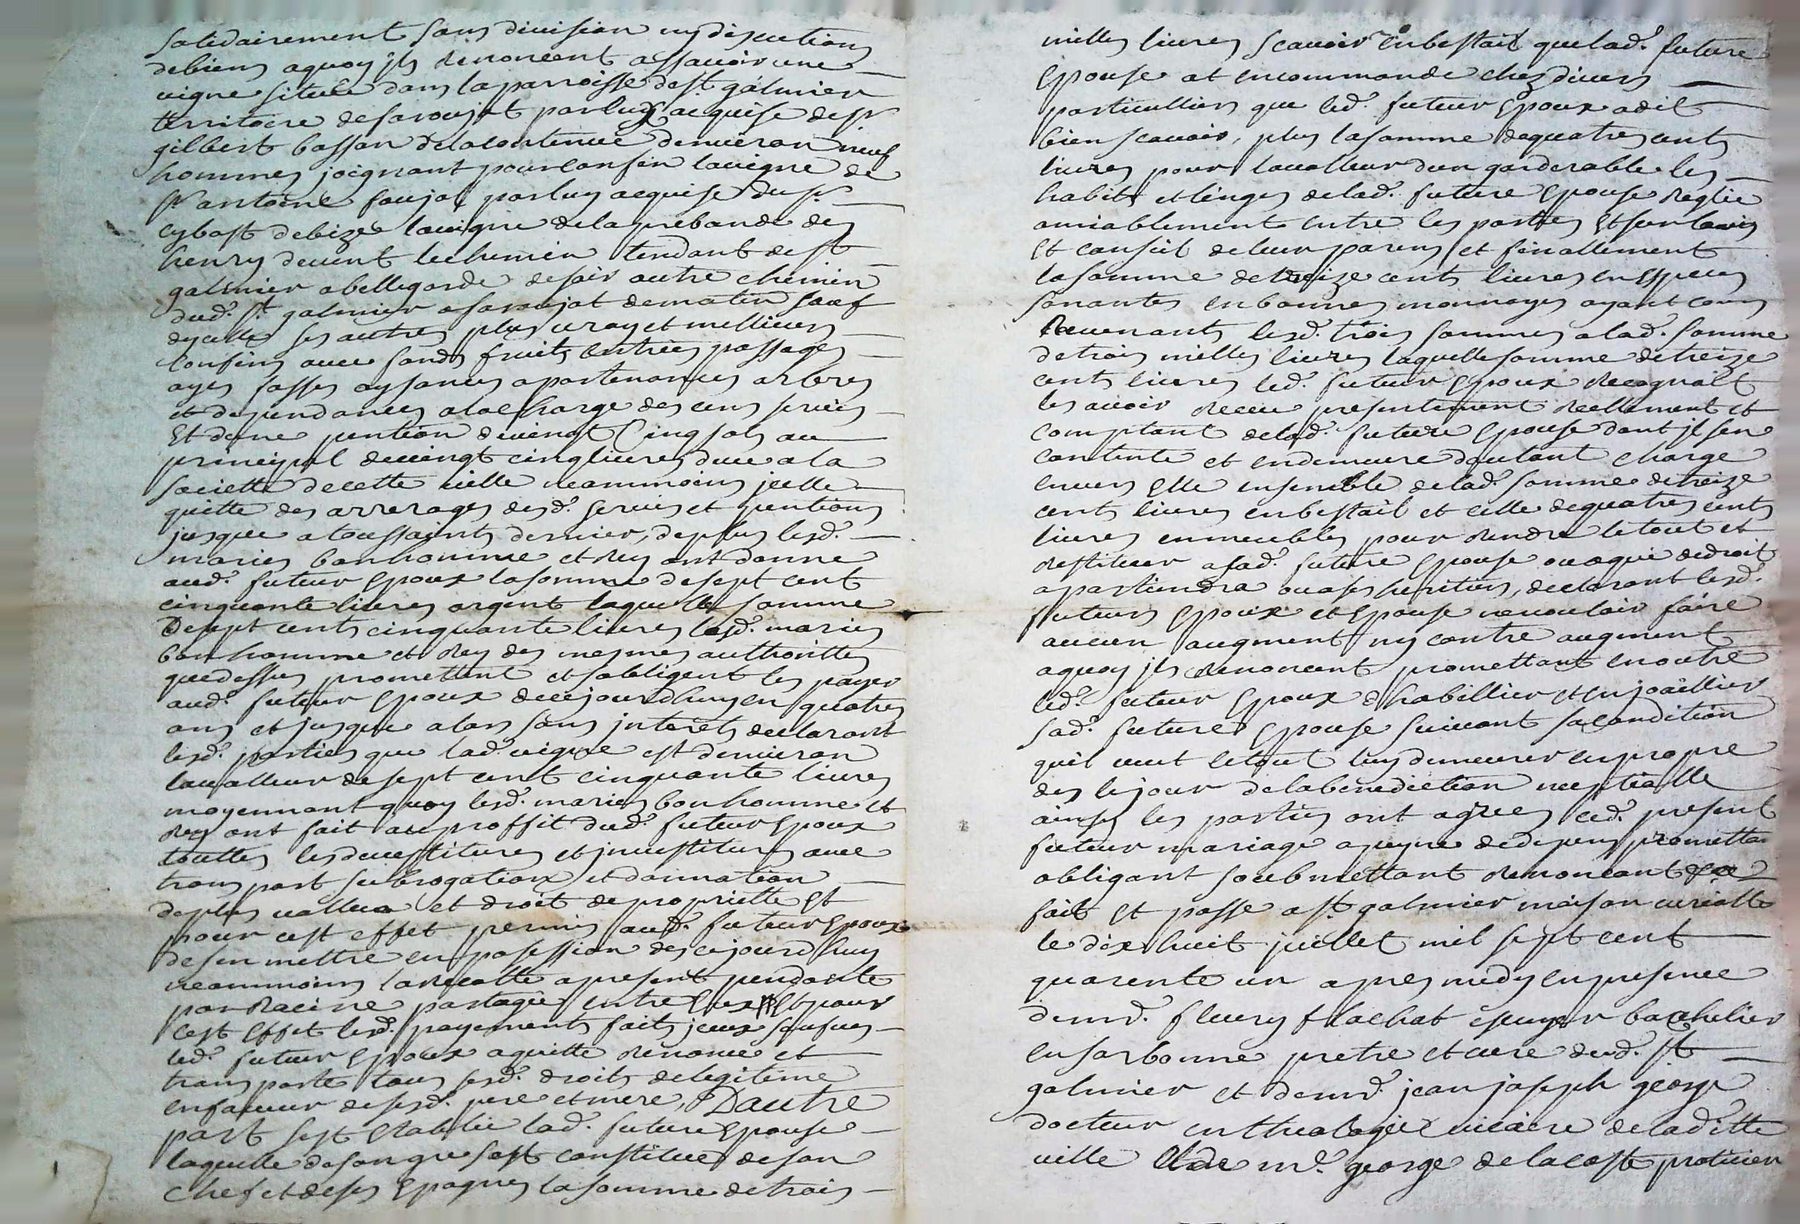 solidairement sans division ny discution
de biens aquoy ils renoncent assavoir une
vigne située dans la parroisse de st galmier
territoire de sarousat par luy acquise de sr
gilbert basson de la contenue denviron neuf
hommes joignant pour confin la vigne de
sr antoine faujas par luy acquise du sr
debize la vigne de la prebande des
henry de vent le chemin tendant de st
galmier a bellegarde de soir autre chemin
dud. st galmier a sarousat de matin sauf
dycelle ses autres plus vray et mellieurs
confins avec fonds fruits entrées passages
ayes fasses aysances apartenances arbres
et dependances a la charge des cens servis
Et dune pention de vingt Cinq sols au
principal de vingt cinq livres due a la
societté de cette ville neammoins jcelle
quitte des arrerages desd. servis et pentions
jusques a toussaints dernier, de plus lesd.
maries bonhomme et Rey ont donné
aud. futeur Epoux la somme de sept cent
cinquante livres argent laquelle somme
De sept cents cinquante livres lesd. maries
bonhomme et Rey des mesmes authorittes
que dessus promettent et sobligent les payer
aud. futeur Epoux de ce jourdhuy en quatres
ans et jusques alors sans jnterets declarant
lesd. parties que lad. vigne est denviron
la valleur de sept cent cinquante livres
moyennant quoy lesd. maries bonhomme et
Rey ont fait au proffit dud. futeur Epoux
touttes les devestitures et jnvestitures avec
transport subrogations et donnation
de plus vallue et droit de proprietté Et
pour cest effet permis aud. futeur Epoux
de sen mettre en posession des ce jourdhuy
neammoins la recolte a present pendante
par Racine partagée entre Eux Et pour
Cest Effet lesd. payements faits jceux
led. futeur Epoux aquitte renonce et
transporte tous sesd. droits de legitime
en faveur de sesd. pere et mere, D'autre
part sest Etablie lad. future Epouse
laquelle de son gre sest constitué de son
chef et de ses Epagnes la somme de trois
milles livres scavoir en bestail que lad. future
Epouse at en commande chez divers
particulliers que led. futeur Epoux a dit
bien scavoir, plus la somme de quatre cents
livres pour la valleur dun garderable les
habits et linges de lad. future Epouse Reglée
amiablement entre les parties Et sur lavis
Et conseil de leur parens et finallement
la somme de treize cents livres en Especes
sonantes en bonnes monnoyes ayant cours
Revenants lesd. trois sommes a lad. somme
de trois milles livres laquelle somme de treize
cents livres led. futeur Epoux Recognait
les avoir Receu presentement reellement et
comptant de lad. future Epouse dont jl sen
contente et en demeure dautant charge
envers Elle ensemble de lad. somme de treize
cents livres en bestail et celle de quatres cents
livres en meubles pour Rendre le tout et
restituer a sad. future Epouse ou a qui de droit
apartiendra ou a ses heritiers, declarant lesd.
futeurs Epoux et Epouse ne vouloir faire
aucun augment ny contre augment
aquoy jls Renoncent promettant en outre
led. futeur Epoux d'habillier et enjoaillier
sad. future Epouse suivant sa condition
quil veut letout luy demeurer en propre
des le jour de la benediction nuptialle
ainsy les parties ont agrées led. present
futeur mariage a peyne de depens promettan
obligant soubmettant Renoncant
fait Et passe a st galmier maison curialle
le dix huit juillet mil sept cent
quarente un apres midy en presence
de mr. fleury flachat Bachelier
en sarbonne pretre et curé dud. st
galmier et de mr. jean joseph george
docteur en theologie vicaire de laditte
ville Et de me. george de la coste praticien